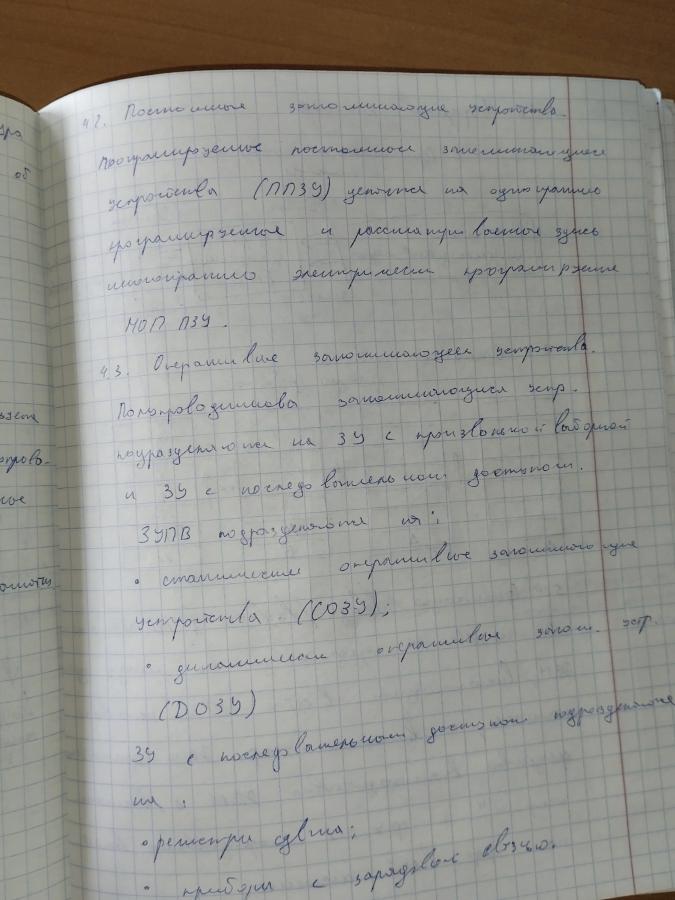 4.2. Постоянные запоминающие устройства.
Программируемые постоянные запоминающие
устройства (ППЗУ) делятся на однократно
программируемые и рассматриваемые здесь
многократно электрически программируемые
МОП ПЗУ.
4.3. Оперативные запоминающие устройства.
Полупроводниковые запоминающиеся устр.
подразделяются на ЗУ с произвольной выборкой
и ЗУ с последовательным доступом.
ЗУПВ подразделяются на:
• статические оперативные запоминающие
устройства (СОЗУ);
• динамические оперативные запом. устр.
(DОЗУ)
ЗУ с последовательным доступом подразделяются
на:
• регистры сдвига;
• приборы с зарядовой связью.